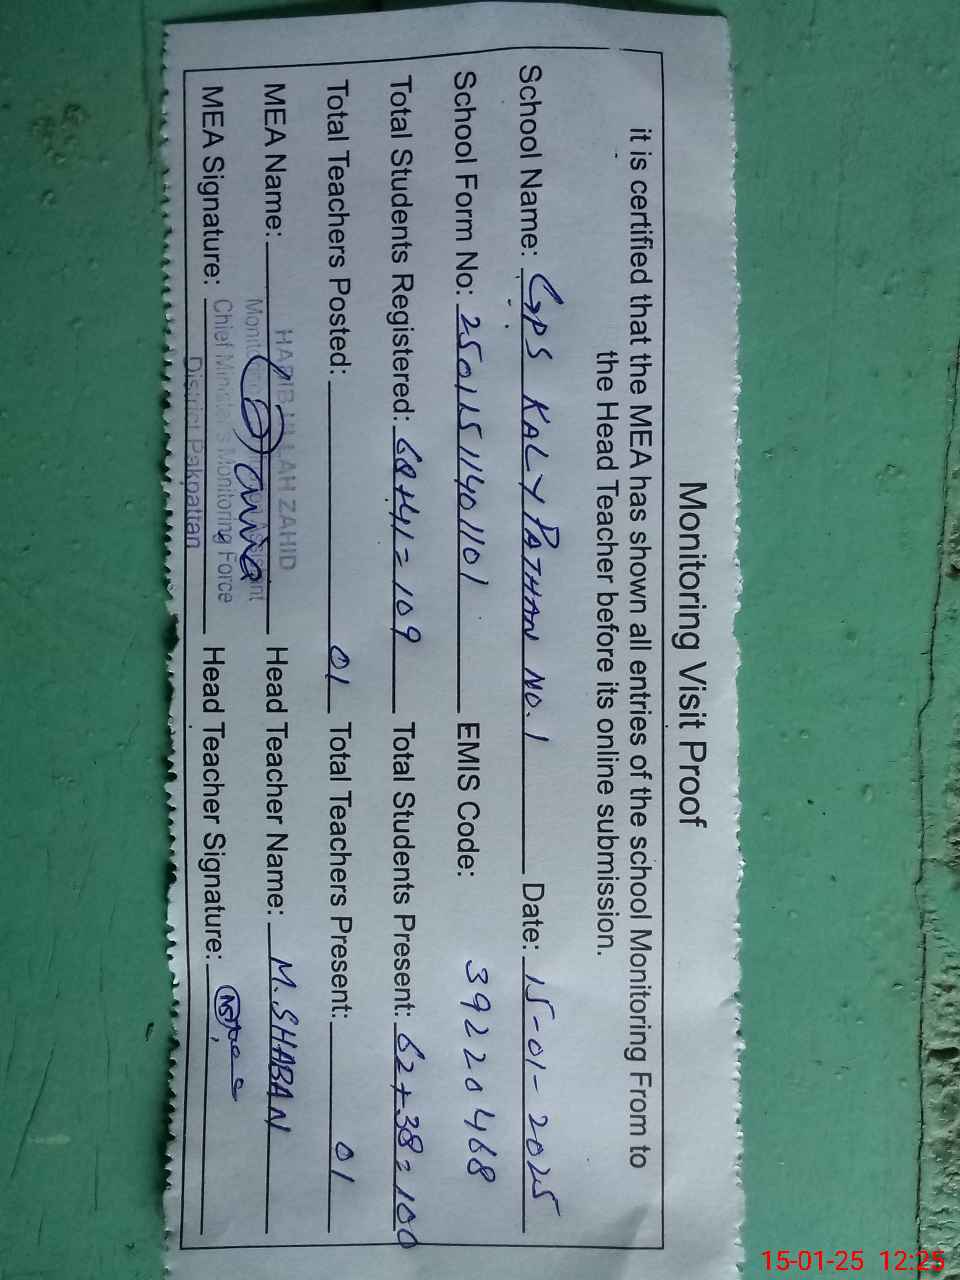 Monitoring Visit Proof
it is certified that the MEA has shown all entries of the school Monitoring From to
the Head Teacher before its online submission.
School Name: GPS KALY PATHAN NO.1 Date: 15-01-2025
School Form No: 25011511401101 EMIS Code: 39220468
Total Students Registered: 68+41=109 Total Students Present: 62+38=100
Total Teachers Posted: 01 Total Teachers Present: 01
HABIB ULLAH ZAHID
MEA Name: Head Teacher Name: M.SHABAN
Chief Minister's Monitoring Force
MEA Signature: Head Teacher Signature:
District Pakpattan
15-01-25 12:25